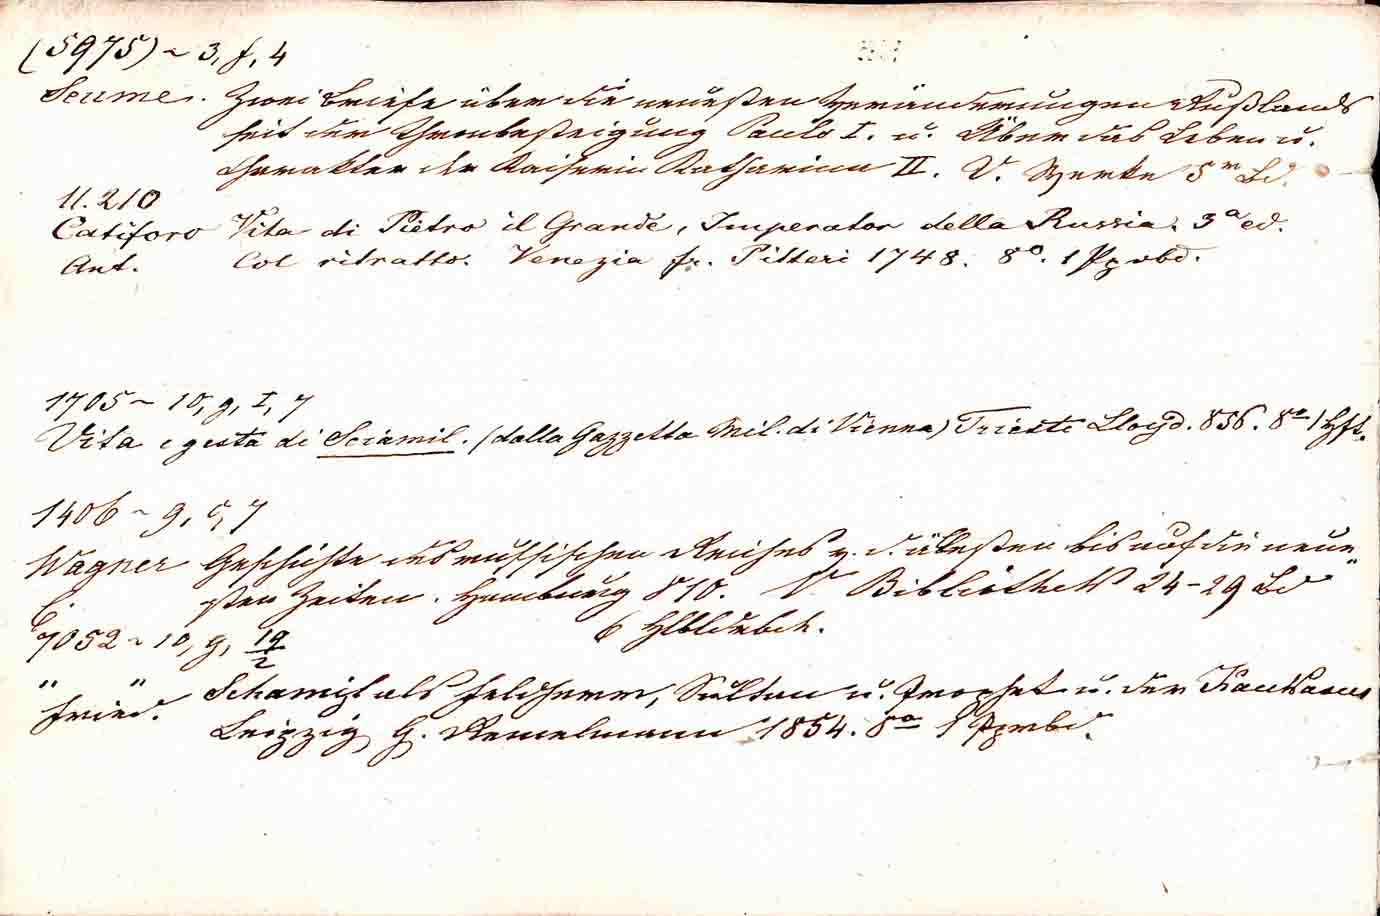 (5975) ~ 3, f, 4
Seume. Zwei Briefe über die neuesten Veränderungen Rußlands
seit der Thronbesteigung Pauls I. u. Über das Leben u.
Charakter der Kaiserin Katharina II. V. Werke 5r Bd.
11.210
Catiforo Vita di Pietro il Grande, Imperator della Russia. 3a ed.
Ant. Col ritratto. Venezia fr. Pitteri 1748. 8o. 1 Ppvbd.
1705 ~ 10, g, I, 7
Vita e gesta di Sciamil. (dalla Gazzetta Mil. di Vienna) Trieste Lloyd. 856. 8o 1 Hft.
1406 ~ g, c, 7
Wagner Geschichte des russischen Reiches v. d. ältesten bis auf die neue„
E. sten Zeiten. Hamburg 810. V. Bibliothek 24-29 Bd
6 Hlbldrbde.
7052 ~ 10, g, 19/2
" " Schamyl als Feldherr, Sultan u. Prophet u. der Kaukasus
Fried. Leipzig G. Remelmann 1854. 8o 1 Ppvbd.